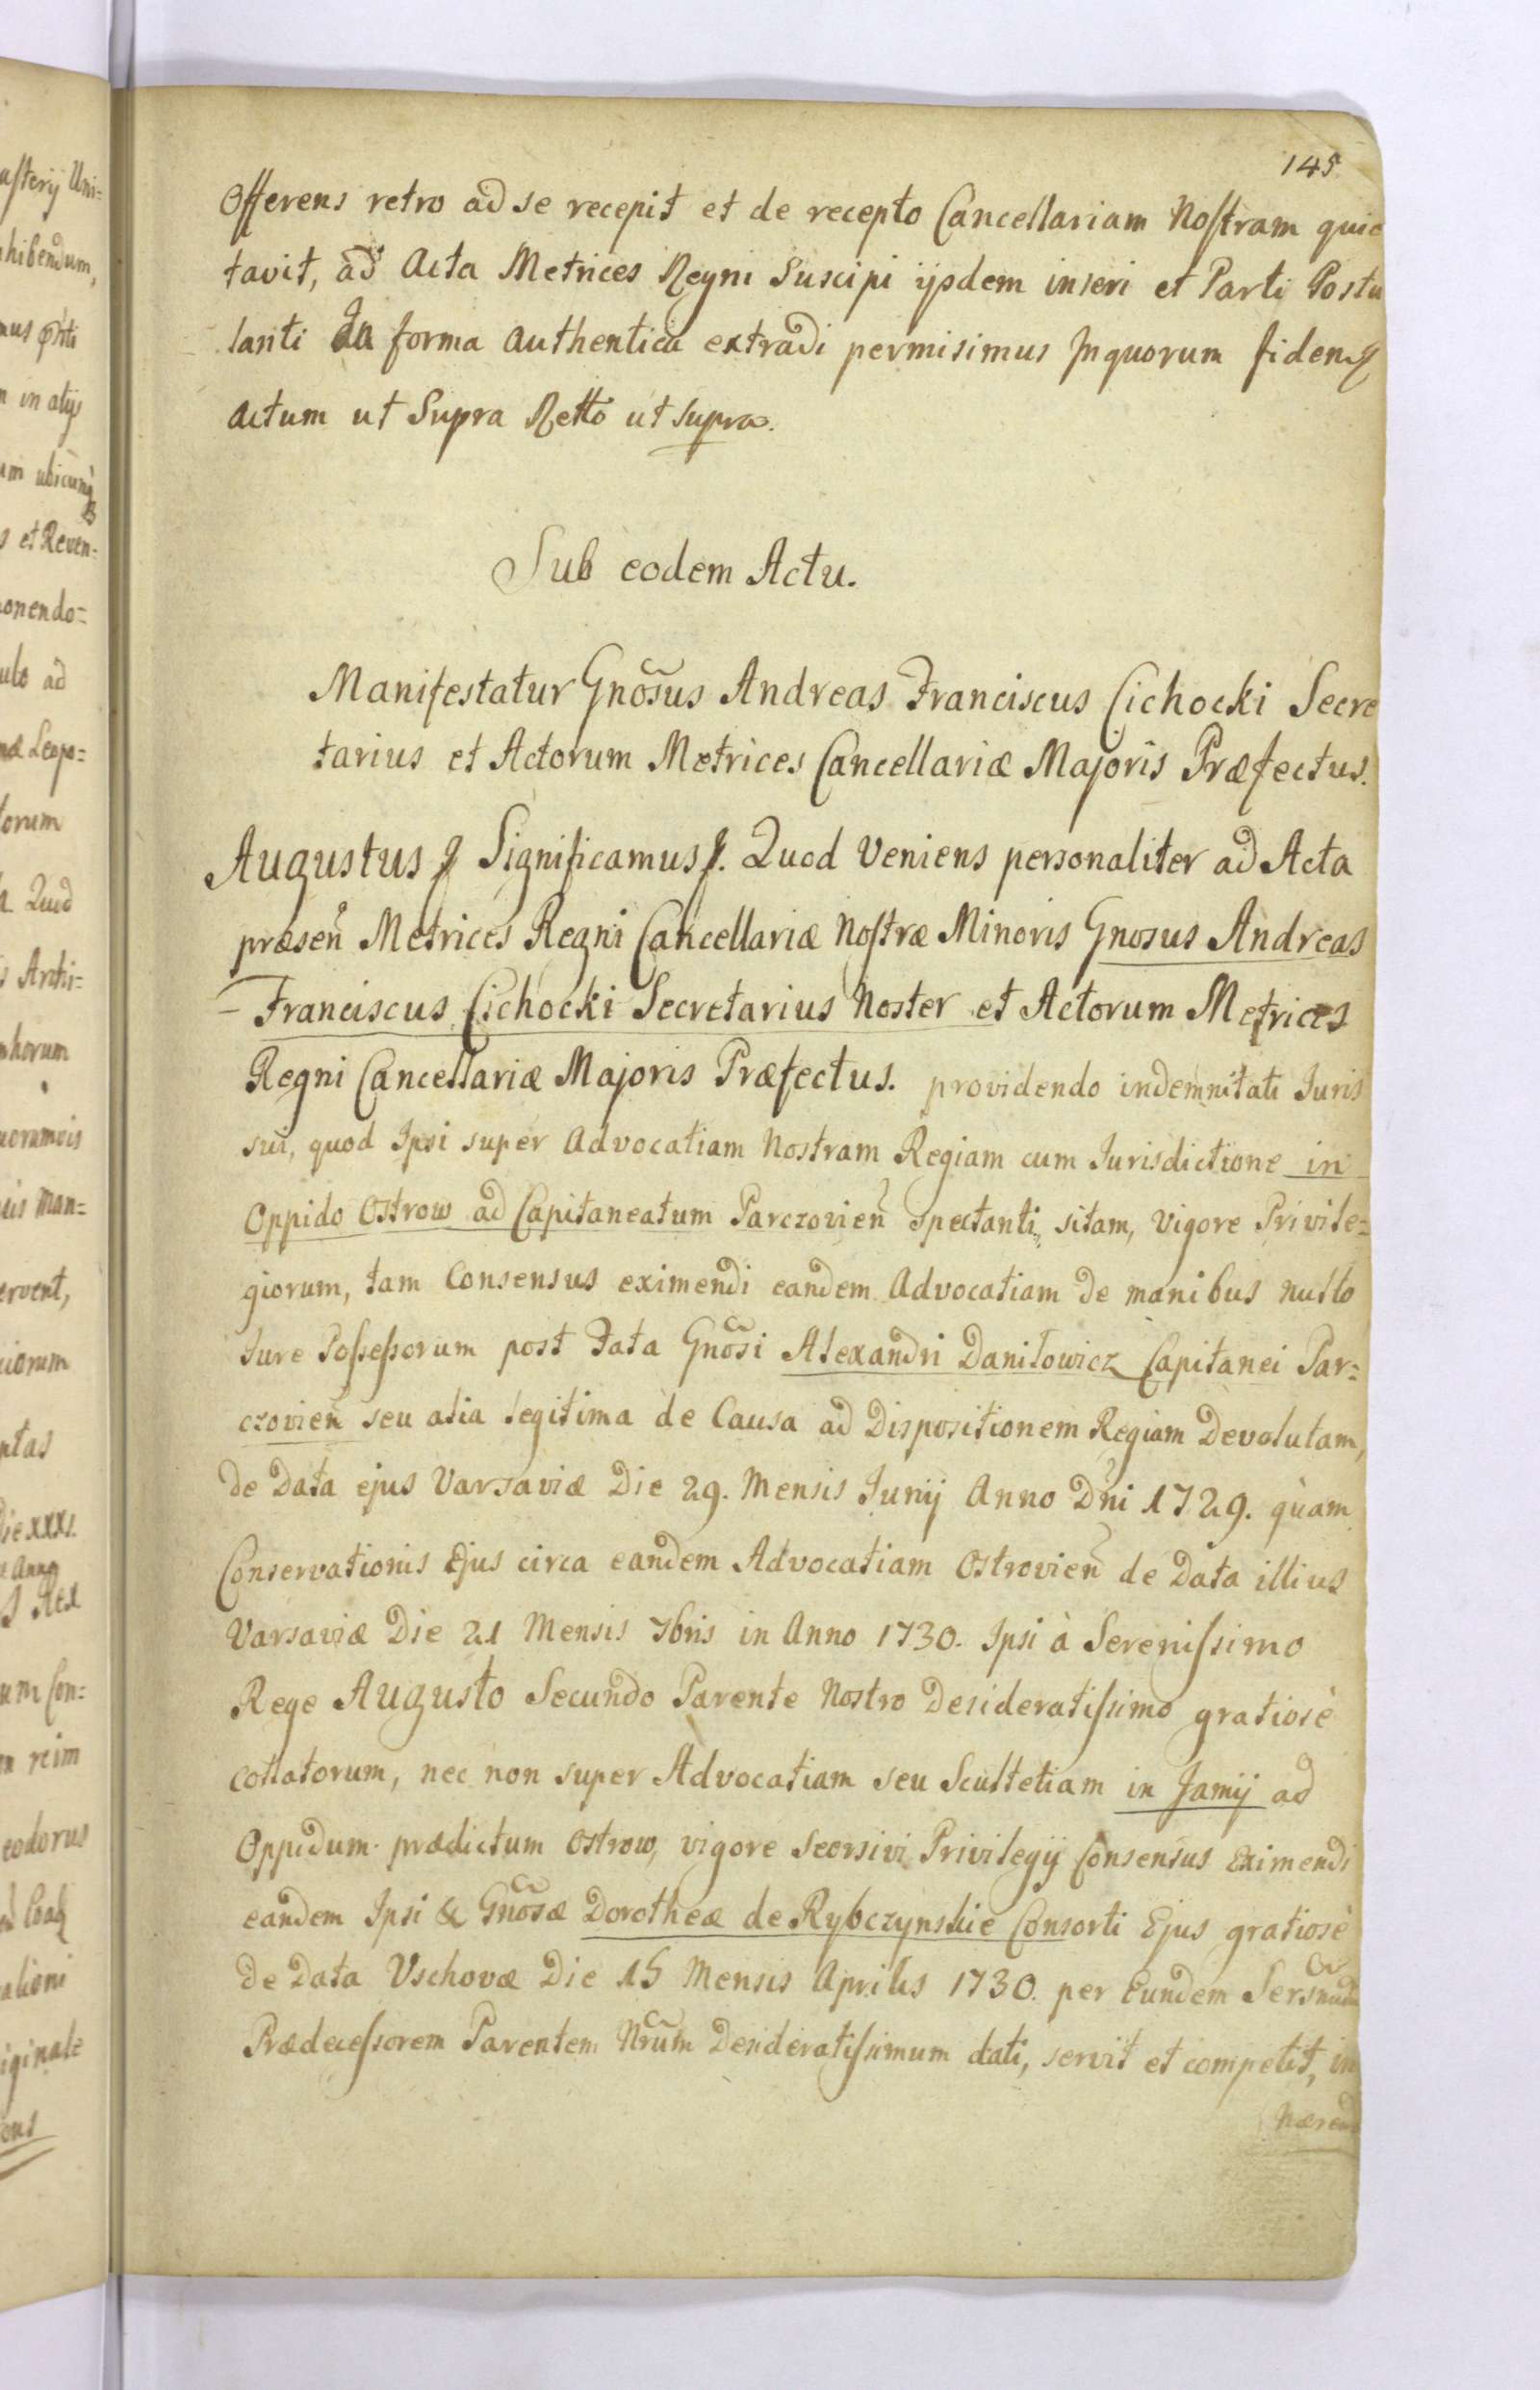 145
Offerens retro ad se recepit et de recepto Cancellariam Nostram quie
tavit, ad Acta Metrices Regni Suscipi ijsdem inseri et Parti Postu
lanti In forma Authentica extradi permisimus In quorum fidem
Actum ut Supra Retto ut supra.
Sub eodem Actu.
Manifestatur Gnõsus Andreas Franciscus Cichocki Secre
tarius et Actorum Metrices Cancellariæ Majoris Præfectus.
Augustus Significamus Quod Veniens personaliter ad Acta
præsen Metrices Regni Cancellariæ Nostræ Minoris Gnosus Andreas
Franciscus Cichocki Secretarius Noster et Actorum Metrices
Regni Cancellariæ Majoris Præfectus. providendo indemnitati Juris
sui, quod Ipsi super Advocatiam Nostram Regiam cum Jurisdictione in
Oppido Ostrow ad Capitaneatum Parczovien spectanti, sitam, vigore Privile=
giorum, tam Consensus eximendi eandem Advocatiam de manibus nullo
Jure Possessorum post Fata Gnõsi Alexandri Daniłowicz Capitanei Par=
czovien seu alia legitima de Causa ad Dispositionem Regiam Devolutam,
de Data ejus Varsaviæ Die 29. Mensis Junij Anno Dni 1729. quàm
Conservationis Ejus circa eandem Advocatiam Ostrovien de Data illius
Varsaviæ Die 21 Mensis 7bris in Anno 1730. Ipsi à Serenissimo
Rege Augusto Secundo Parente Nostro Desideratissimo gratiosè
collatorum, nec non super Advocatiam seu Scultetiam in Jamij ad
Oppidum prædictum Ostrow, vigore Seorsivi Privilegij Consensus Eximendi
eandem Ipsi & Gnõsæ Dorotheæ de Rybczynskie Consorti Ejus gratiosè
de Data Vschovæ Die 15 Mensis Aprilis 1730. per Eundem
Prædecessorem Parentem Nrũm Desideratissimum dati, servit et competit, in
hærend